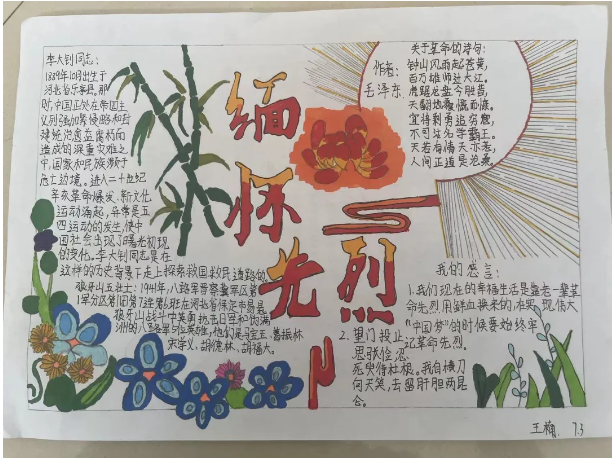 缅怀先烈
李大钊同志:
1889年10月出生于
河北省乐亭县,那
时中国正处在帝国主
义列强加紧侵略和封
建统治愈益腐朽而
造成的深重灾难之
中,国家和民族濒于
危亡边境。进入二十世纪
辛亥革命爆发、新文化
运动涌起,异常是五
四运动的发生,使中
国社会出现了曙光初现
的变化。李大钊同志是在
这样的历史背景下走上探索救国救民道路的
狼牙山五壮士:1941年,八路军晋察冀军区第
1军分区第1团第7连第6班在河北省保定市易县
狼牙山战斗中英勇抗击日军和伪满
洲的八路军5位英雄,他们是马宝玉、葛振林
宋学义、胡德林、胡福才。
关于革命的诗句:
作者:
毛泽东
钟山风雨起苍黄,
百万雄师过大江。
虎踞龙盘今胜昔,
天翻地覆慨而慷。
宜将剩勇追穷寇,
不可沽名学霸王。
天若有情天亦老,
人间正道是沧桑。
我的感言:
1.我们现在的幸福生活是靠老一辈革
命先烈用鲜血换来的,在实现伟大
"中国梦"的时候要始终牢
记革命先烈。
2.望门投止
思张俭,忍
死须臾待杜根。我自横刀
向天笑,去留肝胆两昆
仑。
王楠 7.3